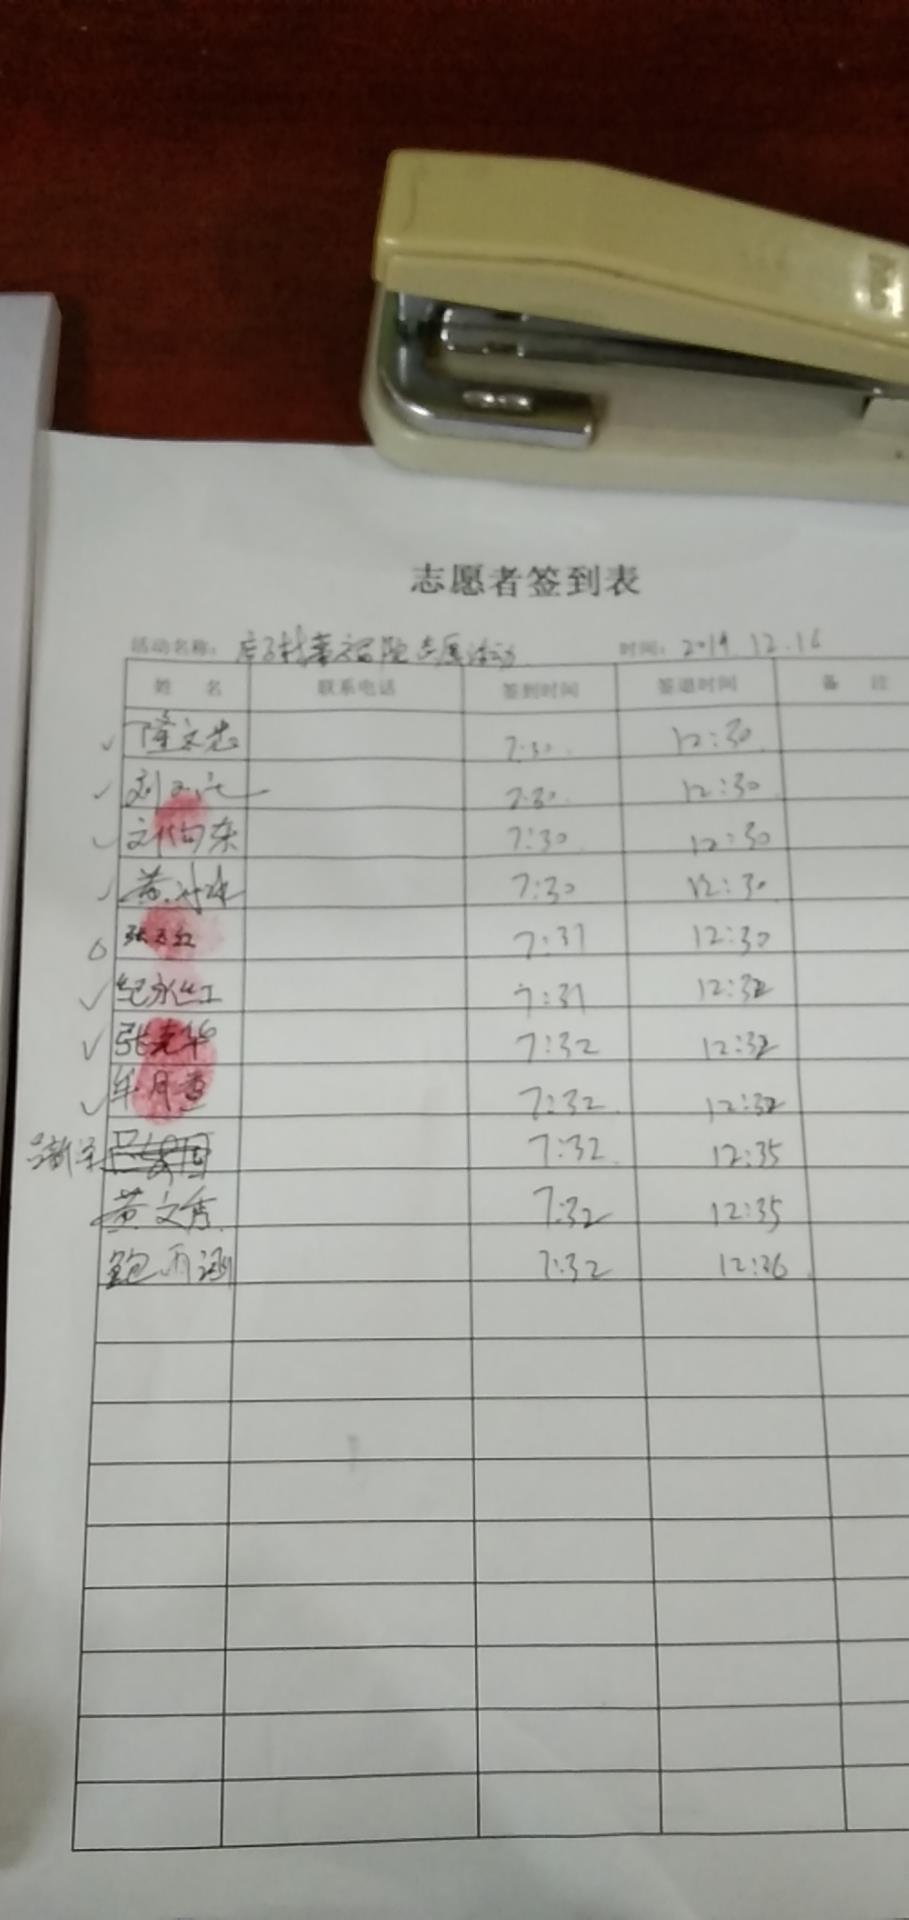 志愿者签到表
活动名称: 时间: 2019.12.16
姓 名 联系电话 签到时间 签退时间 备 注
隆文忠 7:30 12:30
刘 7:30 12:30
向东 7:30 12:30
黄 7:30 12:30
张 红 7:31 12:30
纪永红 7:31 12:32
张克华 7:32 12:32
年月 7:32 12:32
7:32 12:35
黄文秀 7:32 12:35
鲍雨涵 7:32 12:36